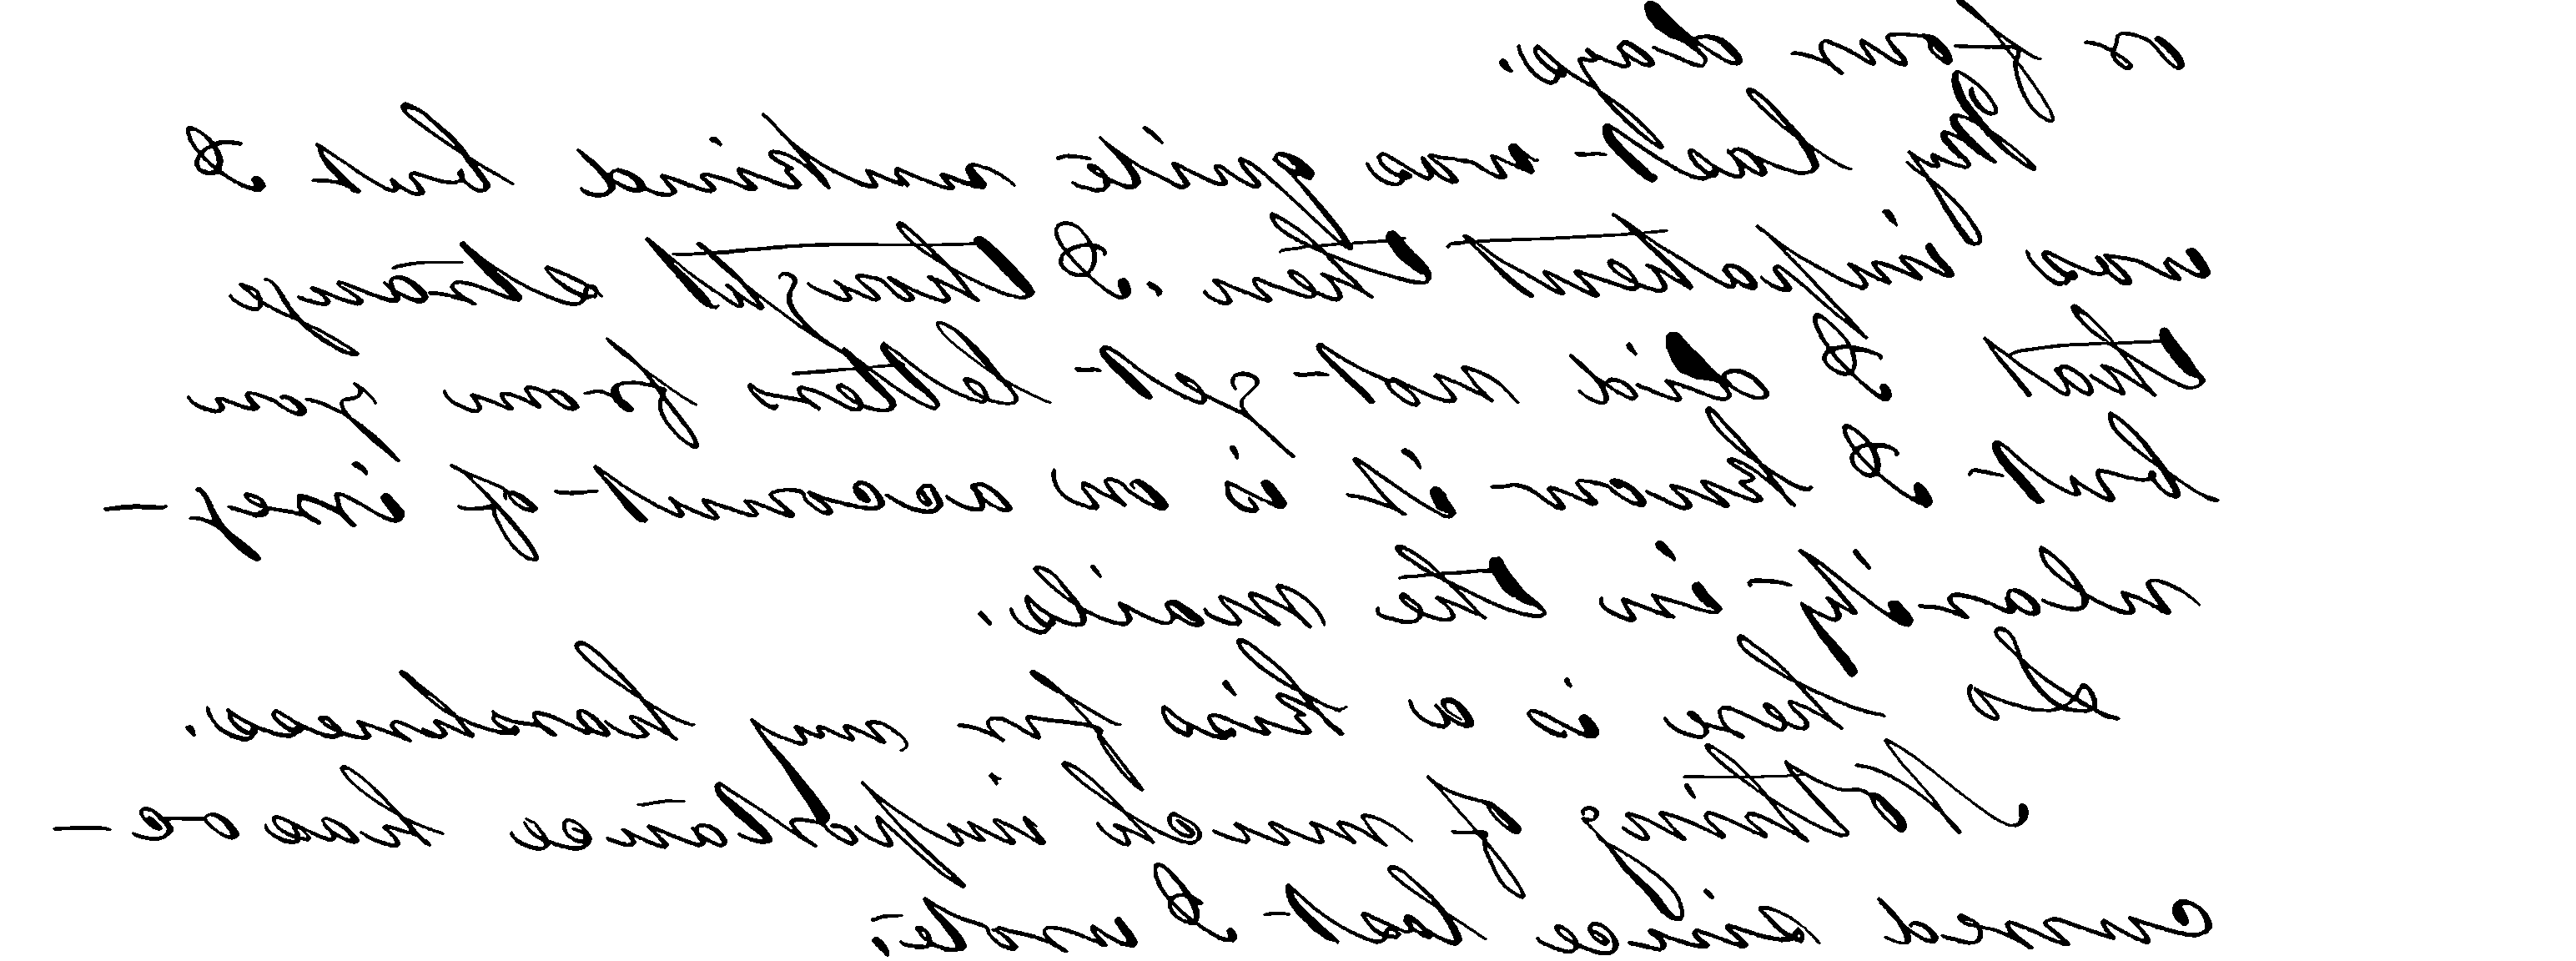 or four days.
My last was quite unkind but I
was impatient then. I thought strange
that I did not get letters from you
but I know it is on account of irreg-
ularity in the mails.
So here is a kiss for my harshness.
Nothing of much importance has oc-
curred since last I wrote,